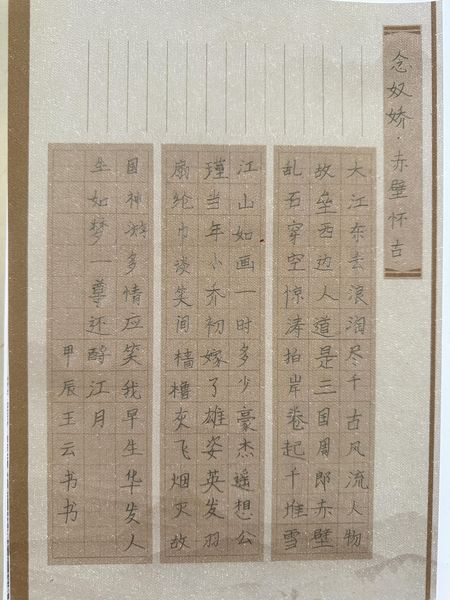 念奴娇·赤壁怀古
大江东去浪淘尽千古风流人物
故垒西边人道是三国周郎赤壁
乱石穿空惊涛拍岸卷起千堆雪
江山如画一时多少豪杰遥想公
瑾当年小乔初嫁了雄姿英发羽
扇纶巾谈笑间樯橹灰飞烟灭故
国神游多情应笑我早生华发人
生如梦一尊还酹江月
甲辰王云书书